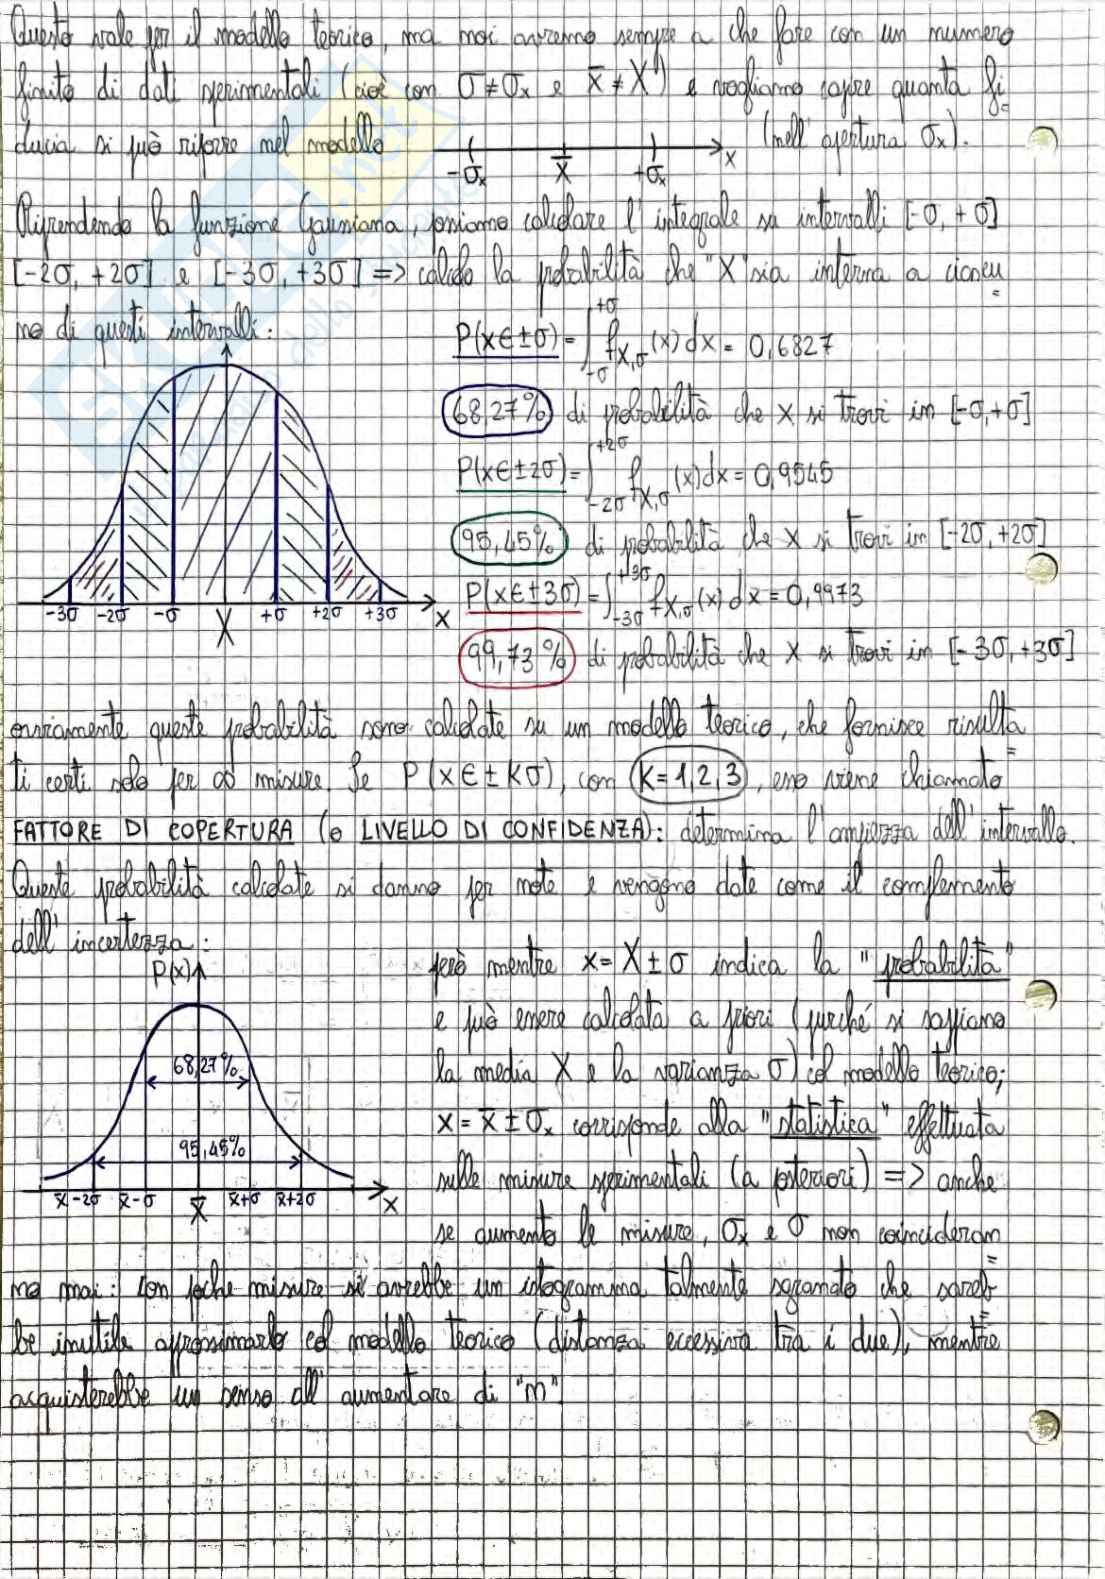 Questo vale per il modello teorico, ma noi avremo sempre a che fare con un numero
finito di dati sperimentali (cioè con σ ≠ σx e x̄ ≠ X) e vogliamo capire quanta fi
ducia si può riporre nel modello
-σx x̄ +σx x
(nell'apertura σx).
Riprendendo la funzione Gaussiana, possiamo calcolare l'integrale su intervalli [-σ, +σ]
[-2σ, +2σ] e [-3σ, +3σ] => calcolo la probabilità che "X" sia interna a ciascu
no di questi intervalli:
P(x∈±σ) = ∫-σ+σ fX,σ(x)dx = 0,6827
68,27% di probabilità che x si trovi in [-σ,+σ]
P(x∈±2σ) = ∫-2σ+2σ fX,σ(x)dx = 0,9545
95,45% di probabilità che x si trovi in [-2σ, +2σ]
P(x∈±3σ) = ∫-3σ+3σ fX,σ(x)dx = 0,9973
99,73% di probabilità che x si trovi in [-3σ,+3σ]
-3σ -2σ -σ X +σ +2σ +3σ x
ovviamente queste probabilità sono calcolate su un modello teorico, che fornisce risulta
ti certi solo per ∞ misure. Se P(x∈±Kσ), con K=1,2,3, esso viene chiamato
FATTORE DI COPERTURA (o LIVELLO DI CONFIDENZA): determina l'ampiezza dell'intervallo.
Queste probabilità calcolate si danno per note e vengono date come il complemento
dell'incertezza:
P(x)
68,27%
95,45%
x̄-2σ x̄-σ x̄ x̄+σ x̄+2σ x
però mentre x = X ± σ indica la "probabilità"
e può essere calcolata a priori (purché si sappiano
la media X e la varianza σ) col modello teorico;
x = x̄ ± σx corrisponde alla "statistica" effettuata
sulle misure sperimentali (a posteriori) => anche
se aumento le misure, σx e σ non coincideran
no mai: con poche misure si avrebbe un istogramma talmente sgranato che sareb
be inutile approssimarlo col modello teorico (distanza eccessiva tra i due), mentre
acquisterebbe un senso all'aumentare di "n"